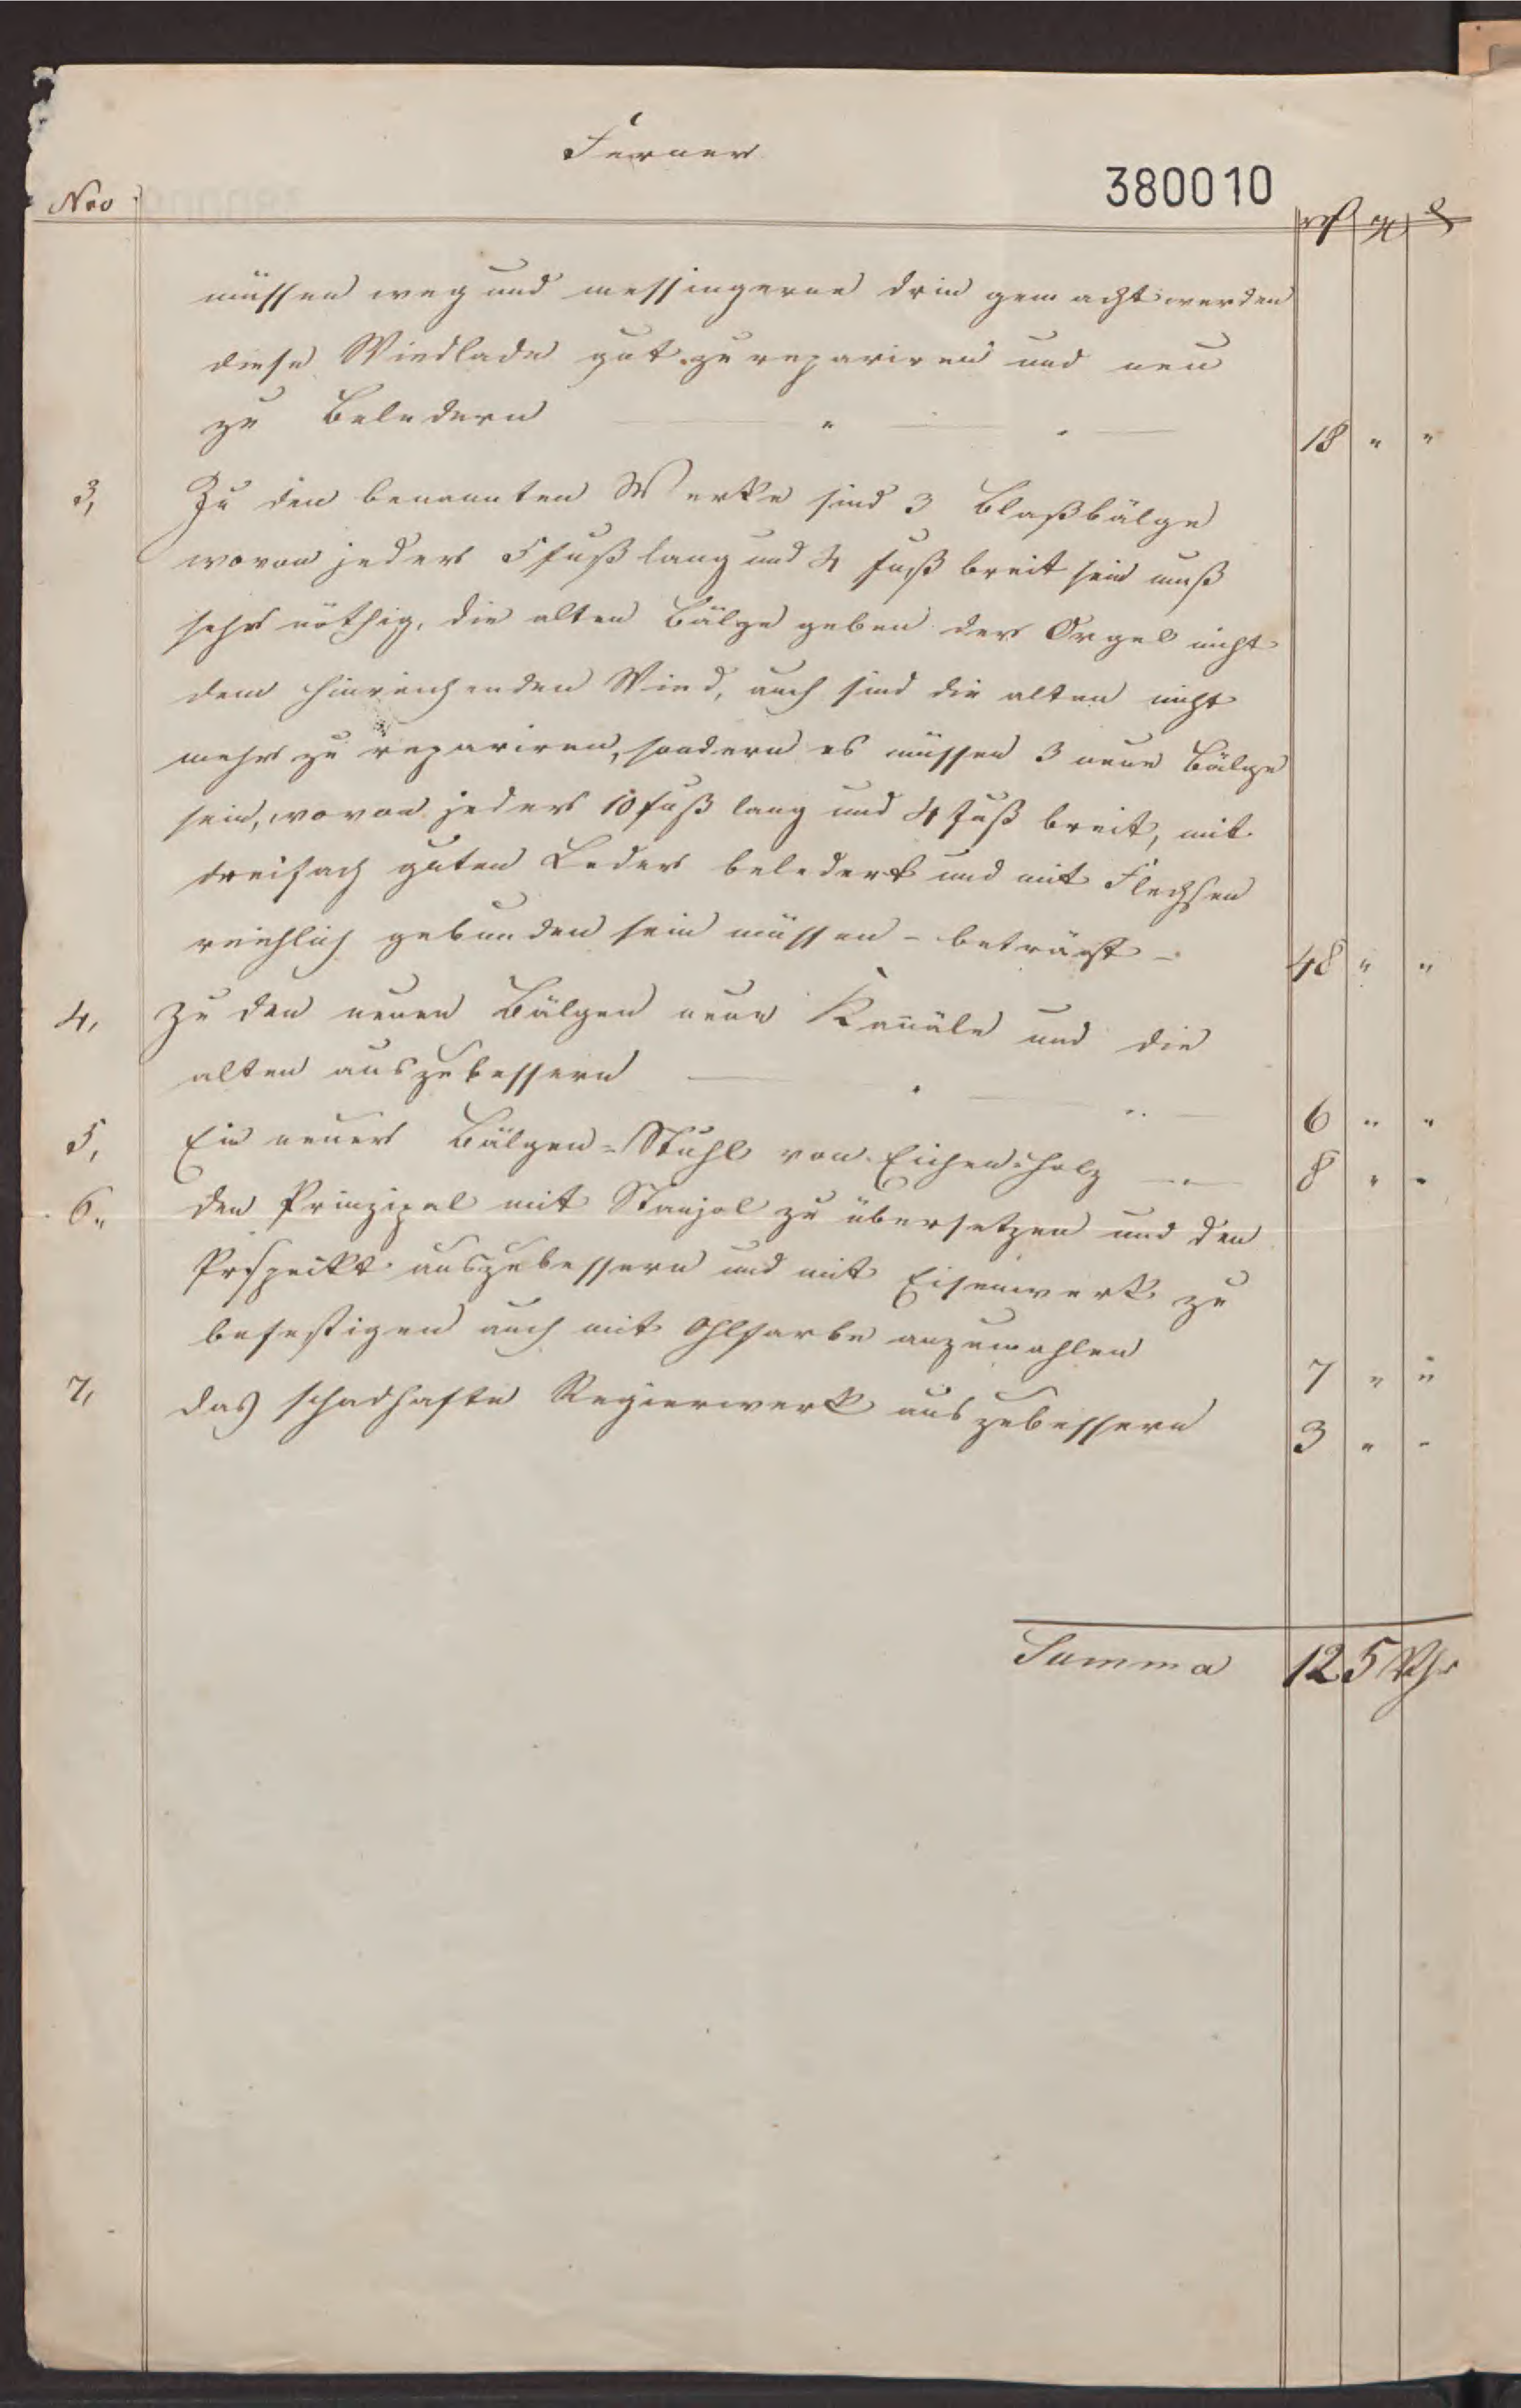 Ferner
380010
Nro rf gr ₰
müssen weg und messingerne drin gemacht werden
diese Windlade gut zu repariren und neu
zu beledern " 18 " "
3, Zu den benannten Werke sind 3 Blaßbälge
wovon jeder 5 fuß lang und 4 fuß breit sein muß
sehr nöthig, die alten Bälge geben der Orgel nicht
dem hinreichenden Wind, auch sind die alten nicht
mehr zu repariren, sondern es müssen 3 neue Bälge
sein, wovon jeder 10 fuß lang und 4 Fuß breit, mit
dreifach guten Leder beledert und mit Flechsen
reichlich gebunden sein müssen - beträgt - 48 " "
4, Zu den neuen Bälgen neue Kanäle und die
alten auszubessern 6 " "
5, Ein neuer Bälgen=Stuhl von Eichenholz 8 " "
6, den Prinzipal mit Stanjol zu übersetzen und den
Prospeikt auszubessern und mit Eisenwerk zu
befestigen auch mit Ohlfarbe anzumahlen 7 " "
7, das schadhafte Regierwerk auszubessern 3 " "
Summa 125 Thr